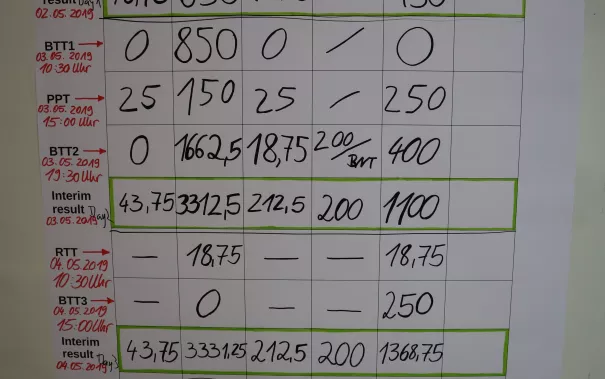 result Day1
02.05.2019
BTT1 0 850 0 / 0
03.05.2019
10:30 Uhr
PPT 25 150 25 / 250
03.05.2019
15:00 Uhr
BTT2 0 1662,5 18,75 200/BNT 400
03.05.2019
19:30 Uhr
Interim
result Day2 43,75 3312,5 212,5 200 1100
03.05.2019
RTT — 18,75 — — 18,75
04.05.2019
10:30 Uhr
BTT3 — 0 — — 250
04.05.2019
15:00 Uhr
Interim
result Day3 43,75 3331,25 212,5 200 1368,75
04.05.2019